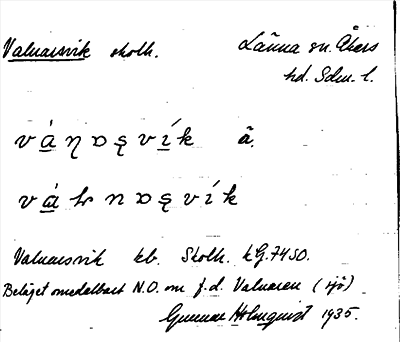 Valnarsvik skolh. Länna sn. Åkers
hd. Sdm. l.
v á̱ η ɒ s̨ v í̱ k å.
v á̱ ɫ n ɒ s̨ v í k
Valnarsvik kb. Skolh. kG.7450.
Beläget omedelbart N.O. om f.d. Valnaren (sjö)
Gunnar Holmquist 1935.